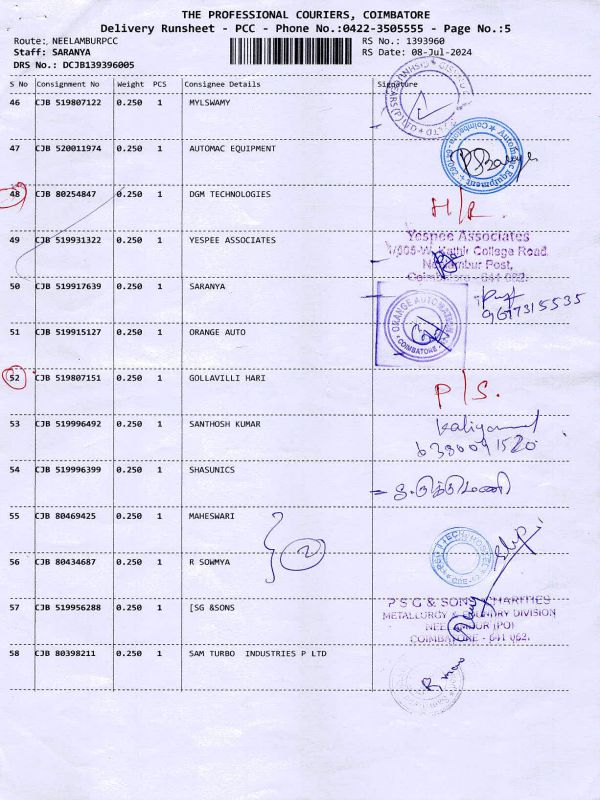 THE PROFESSIONAL COURIERS, COIMBATORE
Delivery Runsheet - PCC - Phone No.:0422-3505555 - Page No.:5
Route: NEELAMBURPCC RS No.: 1393960
Staff: SARANYA RS Date: 08-Jul-2024
DRS No.: DCJB139396005
S No Consignment No Weight PCS Consignee Details Signature
46 CJB 519807122 0.250 1 MYLSWAMY
47 CJB 520011974 0.250 1 AUTOMAC EQUIPMENT
48 CJB 80254847 0.250 1 DGM TECHNOLOGIES H/R.
49 CJB 519931322 0.250 1 YESPEE ASSOCIATES
Yespee Associates
Kathir College Road,
Post,
50 CJB 519917639 0.250 1 SARANYA
9677315535
51 CJB 519915127 0.250 1 ORANGE AUTO
COIMBATORE
52 CJB 519807151 0.250 1 GOLLAVILLI HARI P/S.
53 CJB 519996492 0.250 1 SANTHOSH KUMAR
6380091520
54 CJB 519996399 0.250 1 SHASUNICS
55 CJB 80469425 1 0.250 1 MAHESWARI
2
56 CJB 80434687 0.250 1 R SOWMYA
57 CJB 519956288 0.250 1 [SG &SONS
P S G & SONS CHARITIES
METALLURGY & FOUNDRY DIVISION
NEELAMBUR (PO)
COIMBATORE - 641 062.
58 CJB 80398211 0.250 1 SAM TURBO INDUSTRIES P LTD